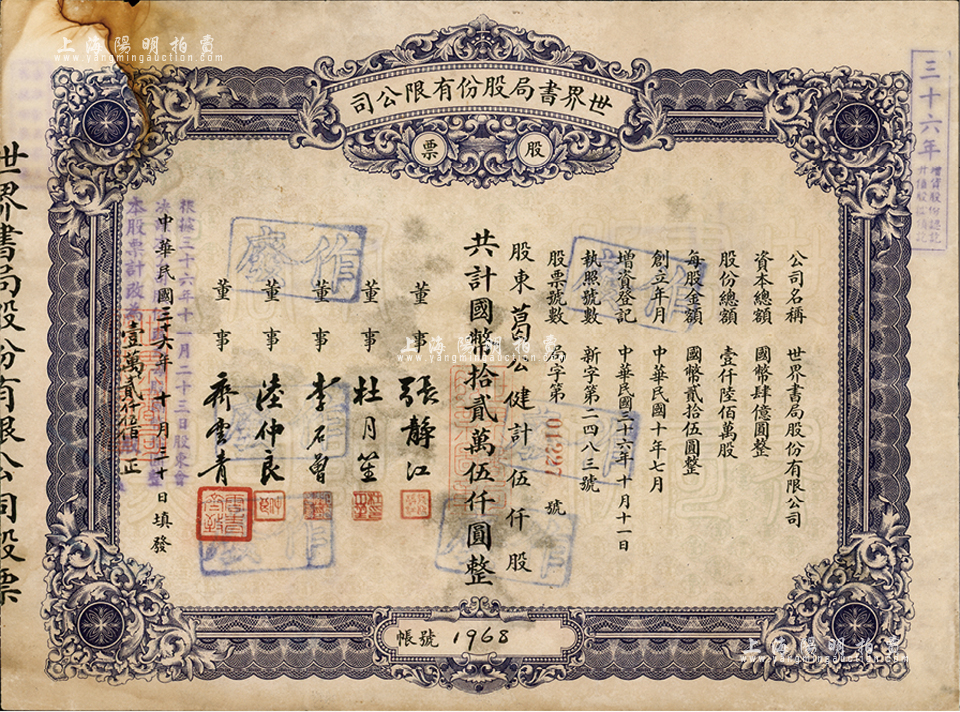 上海陽明拍賣
www.yangmingauction.com
世界書局股份有限公司
股票
三十六年
公司名稱 世界書局股份有限公司
資本總額 國幣肆億圓整
股份總額 壹仟陸佰萬股
每股金額 國幣貳拾伍圓整
創立年月 中華民國十年七月
增資登記 中華民國三十六年十月十一日
執照號數 新字第二四八三號
股票號數 局字第 號
股東葛公健計伍仟股
共計國幣拾貳萬伍仟圓整
董事 張靜江
董事 杜月笙
董事 李石曾
董事 陸仲良
董事 齊雲青
中華民國三十六年十月三十日填發
根據三十六年十一月二十三日股東會
本股票計改為壹萬貳仟伍佰
正
作廢
作廢
作廢
作廢
作廢
世界書局股份有限公司股票
帳號 1968
上海陽明拍賣
www.yangmingauction.com
上海陽明拍賣
www.yangmingauction.com